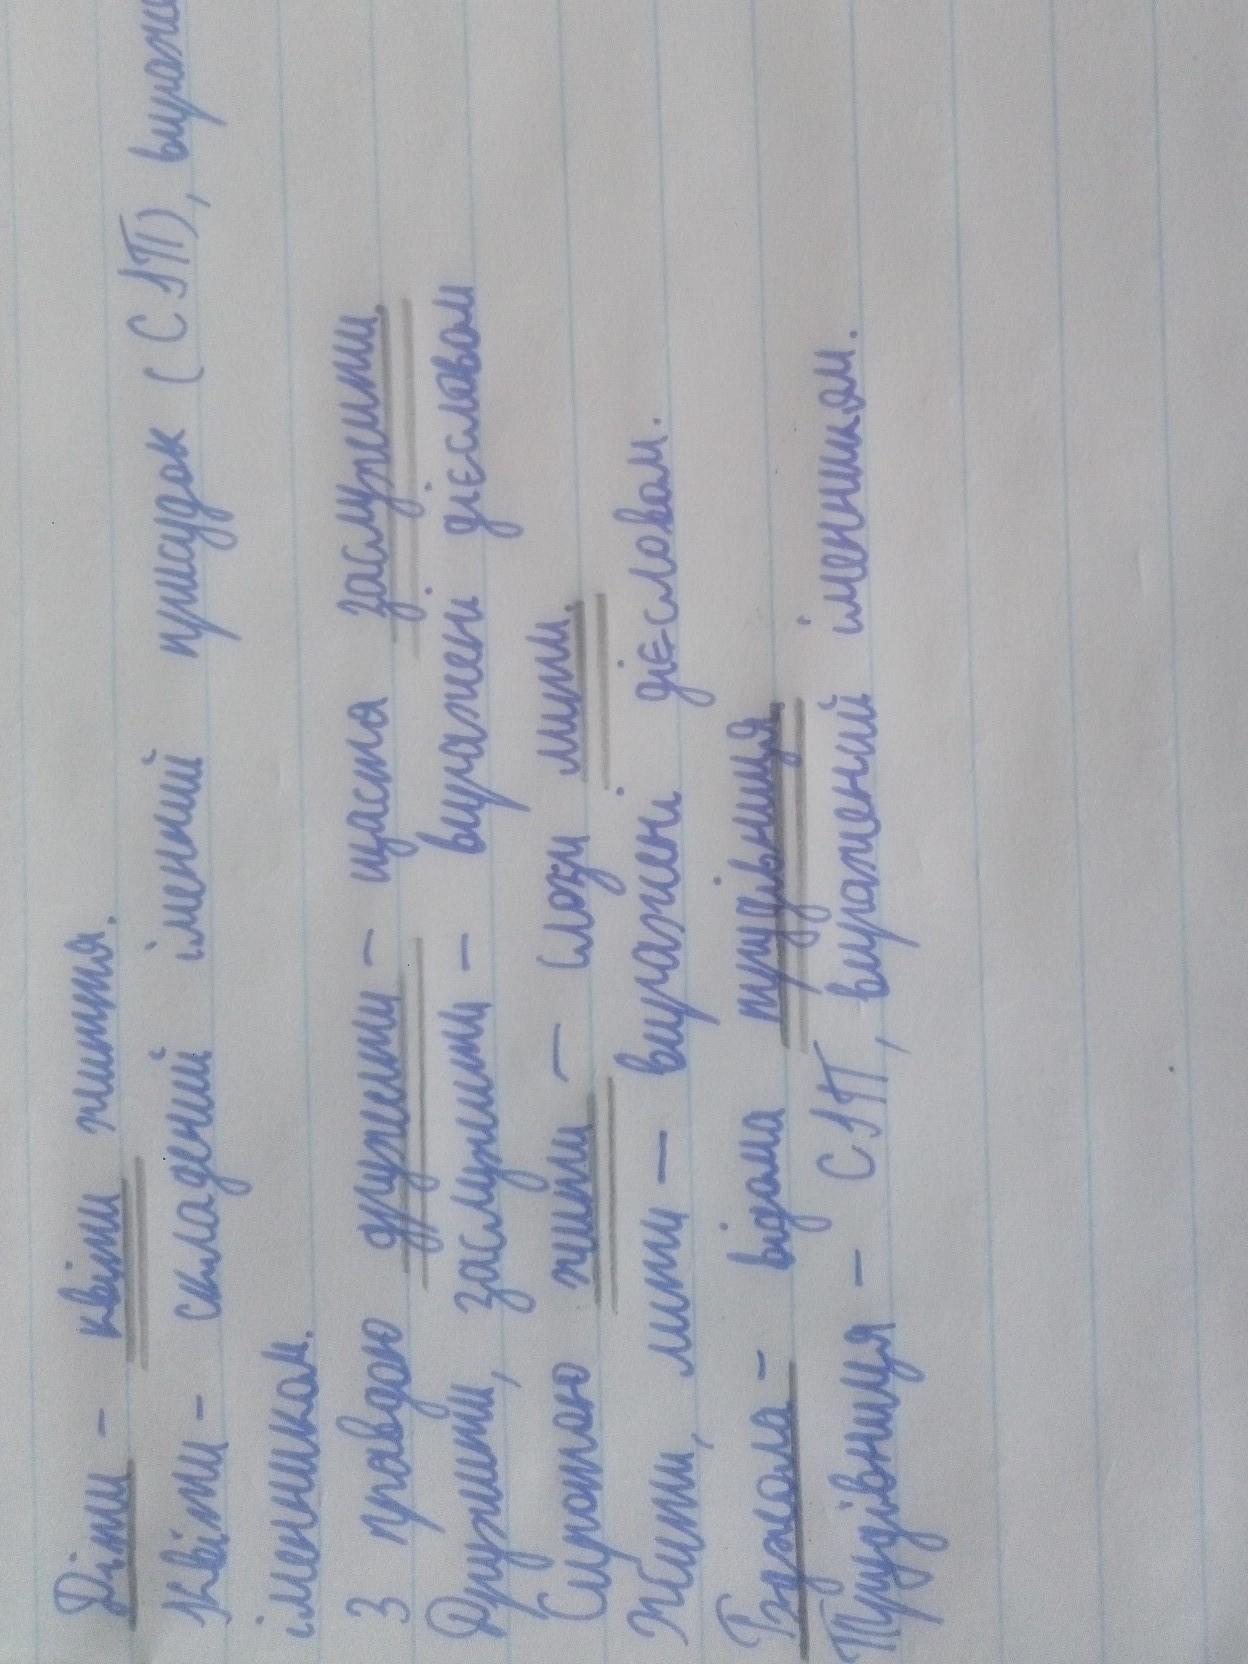 Діти - квіти життя.
Квіти - складений іменний присудок (СІП), выраже
іменником.
З правдою дружити - щастя заслужити.
Дружити, заслужити - виражені дієсловом
Сиротою жити - сльози лити.
Жити, лити - виражені дієсловом.
Бджола - відома трудівниця.
Трудівниця - СІП, виражений іменником.